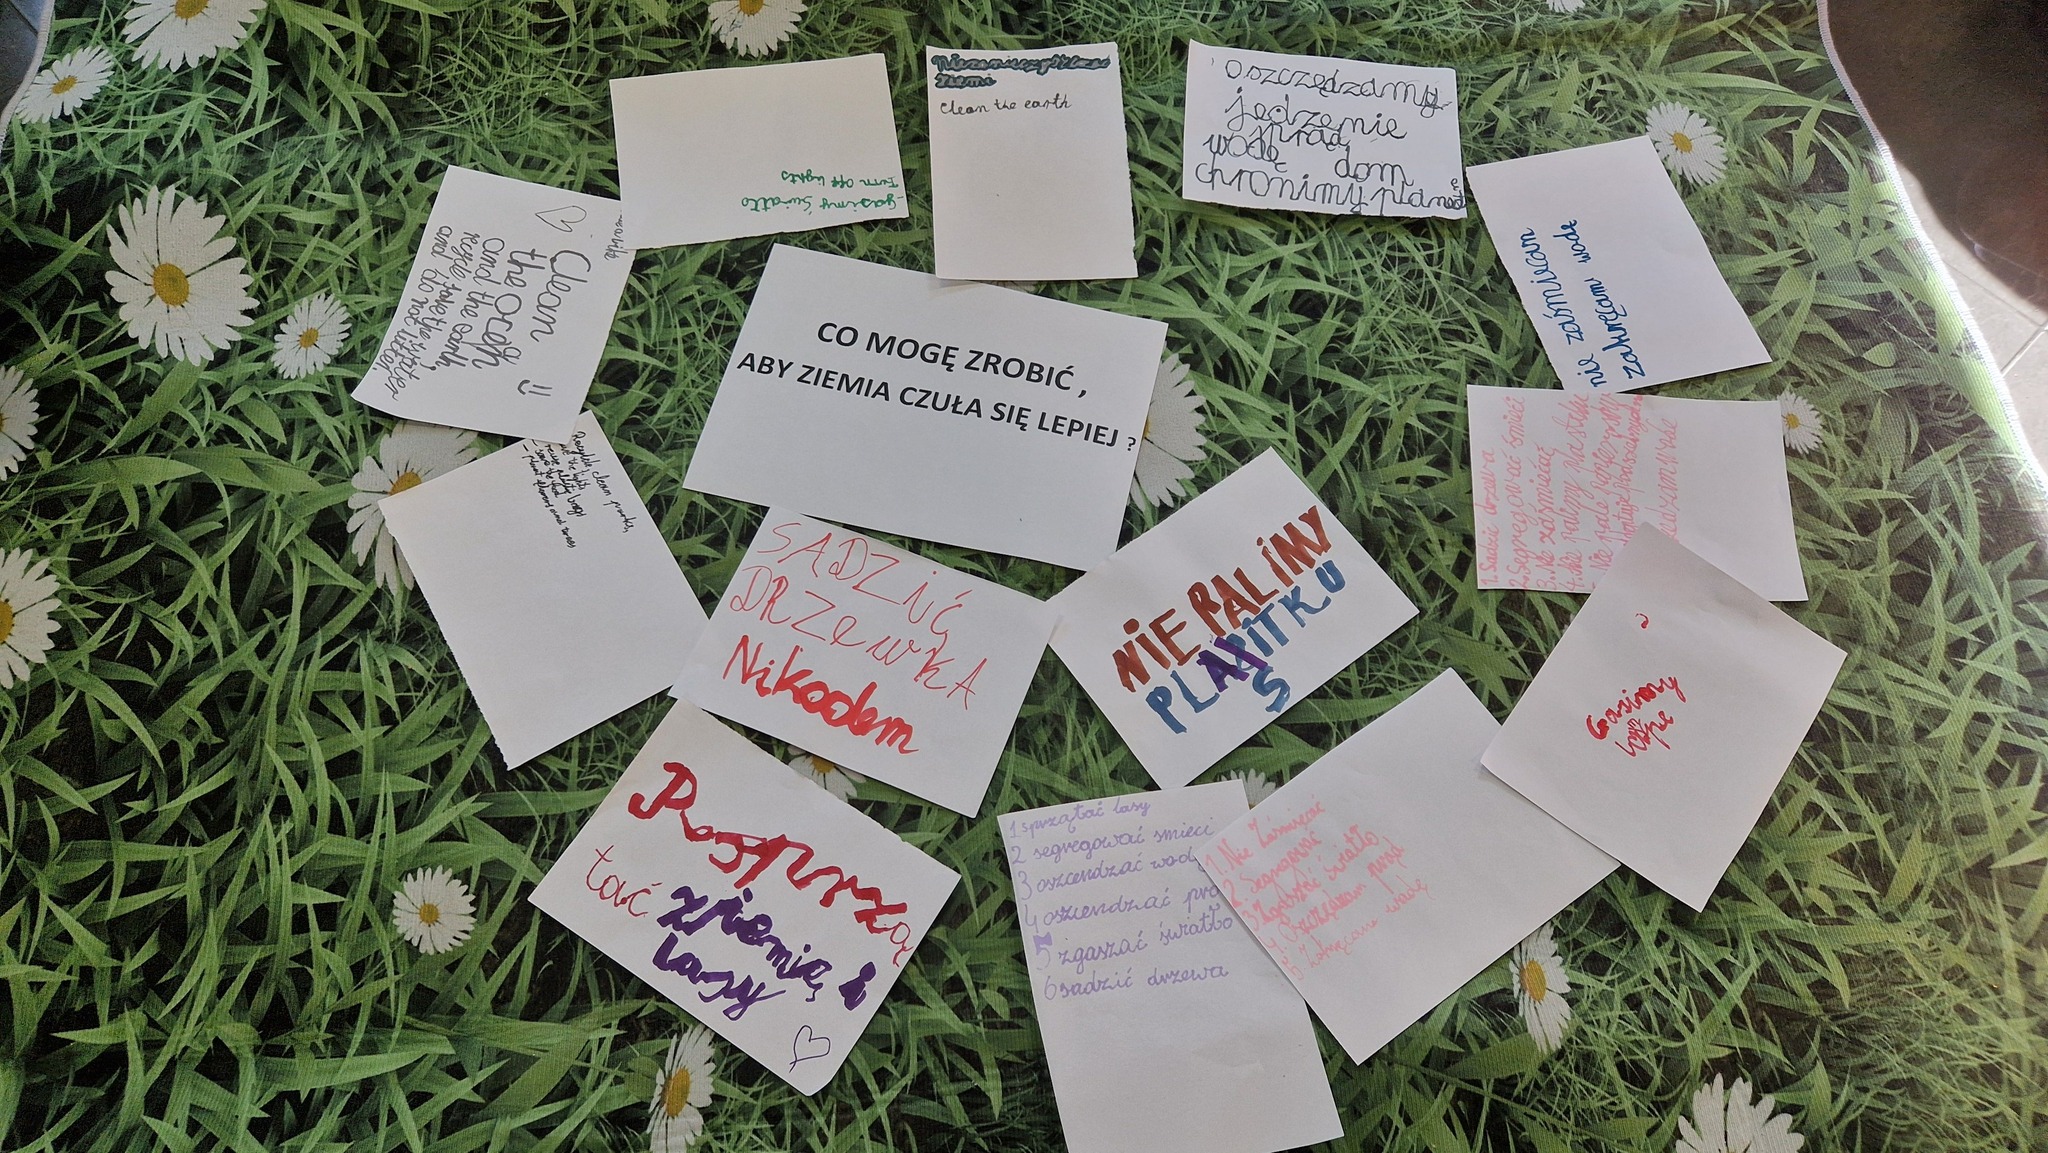 CO MOGĘ ZROBIĆ ,
ABY ZIEMIA CZUŁA SIĘ LEPIEJ ?
gasimy światło
Turn Off lights
ziemi
Clean the earth
oszczędzamy
jedzenie
prąd
wodę dom
chronimy planetę
nie zaśmiecam
zakręcam wodę
1. Sadzić drzewa
2. Segregować śmieci
3. Nie zaśmiecać
4. Nie palimy plastiku
Gasimy
Clean
the Ocean
and the earth,
recycle, save the water
and do not litter!
Recykle, clean parks,
SADZIĆ
DRZEWKA
Nikodem
NIE PALIMY
PLAPITKU
S
Posprzą
tać ziemię i
lasy
1 sprzątać lasy
2 segregować smieci
3 oszcendzać wod
4 oszcendzać prą
5 zgaszać światło
6 sadzić drzewa
1. Nie Zaśmiecać
2. Segregować
3. Zgasić światło
4. Oszczędzam prąd
5. Zakręcam wodę